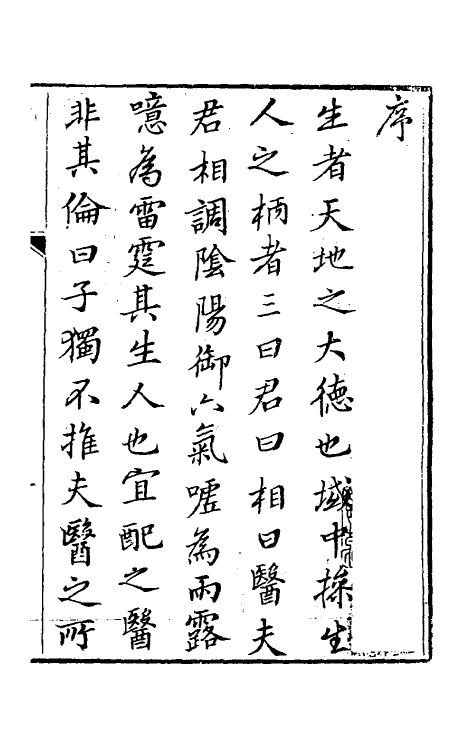 序
生者天地之大德也域中操生
人之柄者三曰君曰相曰醫夫
君相調陰陽御六氣噓為雨露
噫為雷霆其生人也宜配之醫
非其倫曰子獨不推夫醫之所